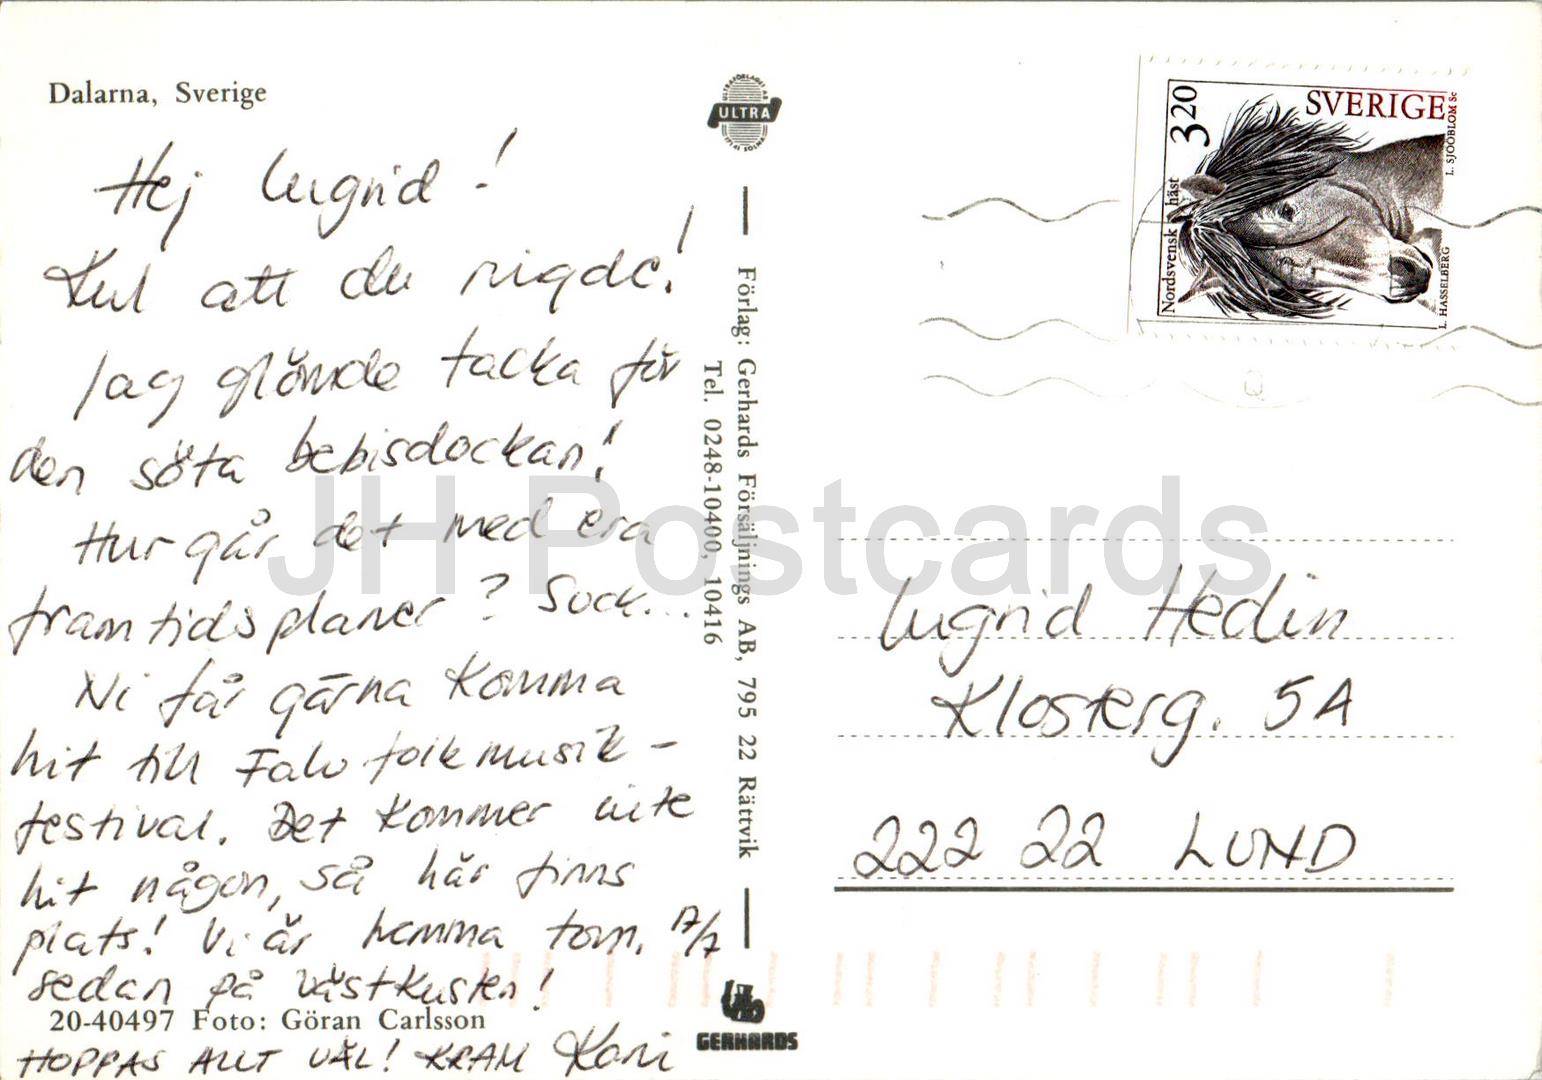 Dalarna, Sverige
Hej Ingrid!
Kul att du ringde!
Jag glömde tacka för
den söta bebisdockan!
Hur går det med era
framtidsplaner? Suck...
Ni får gärna komma
hit till Falu folkmusik-
festival. Det kommer inte
hit någon, så här finns
plats! Vi är hemma tom. 17/7
sedan på västkusten!
20-40497 Foto: Göran Carlsson
HOPPAS ALLT VÄL! KRAM Kari
ULTRAFÖRLAGET AB
ULTRA
Förlag: Gerhards Försäljnings AB, 795 22 Rättvik
Tel. 0248-10400, 10416
GERHARDS
SVERIGE
3.20
Nordsvensk häst
L. HASSELBERG
L. SJÖÖBLOM Sc
Ingrid Hedin
Klosterg. 5A
222 22 LUND
JH Postcards